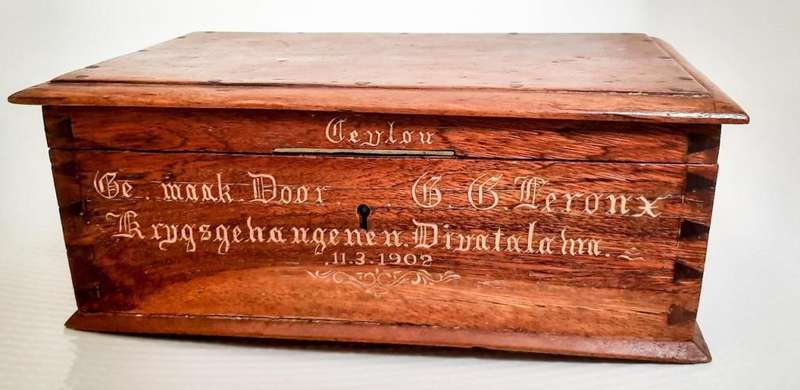 Ceylon
Ge . maak . Door . G . G . Leroux
Krygsgevangenen . Diyatalawa .
. 11.3.1902